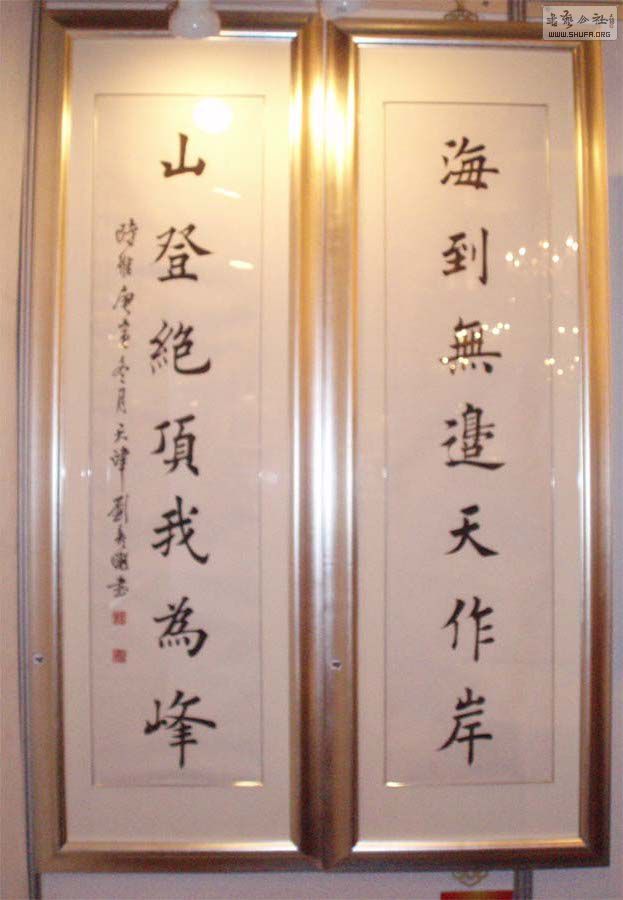 海到無邊天作岸
山登絕頂我為峰
時維庚寅冬月天津劉春雨書
书艺公社
WWW.SHUFA.ORG